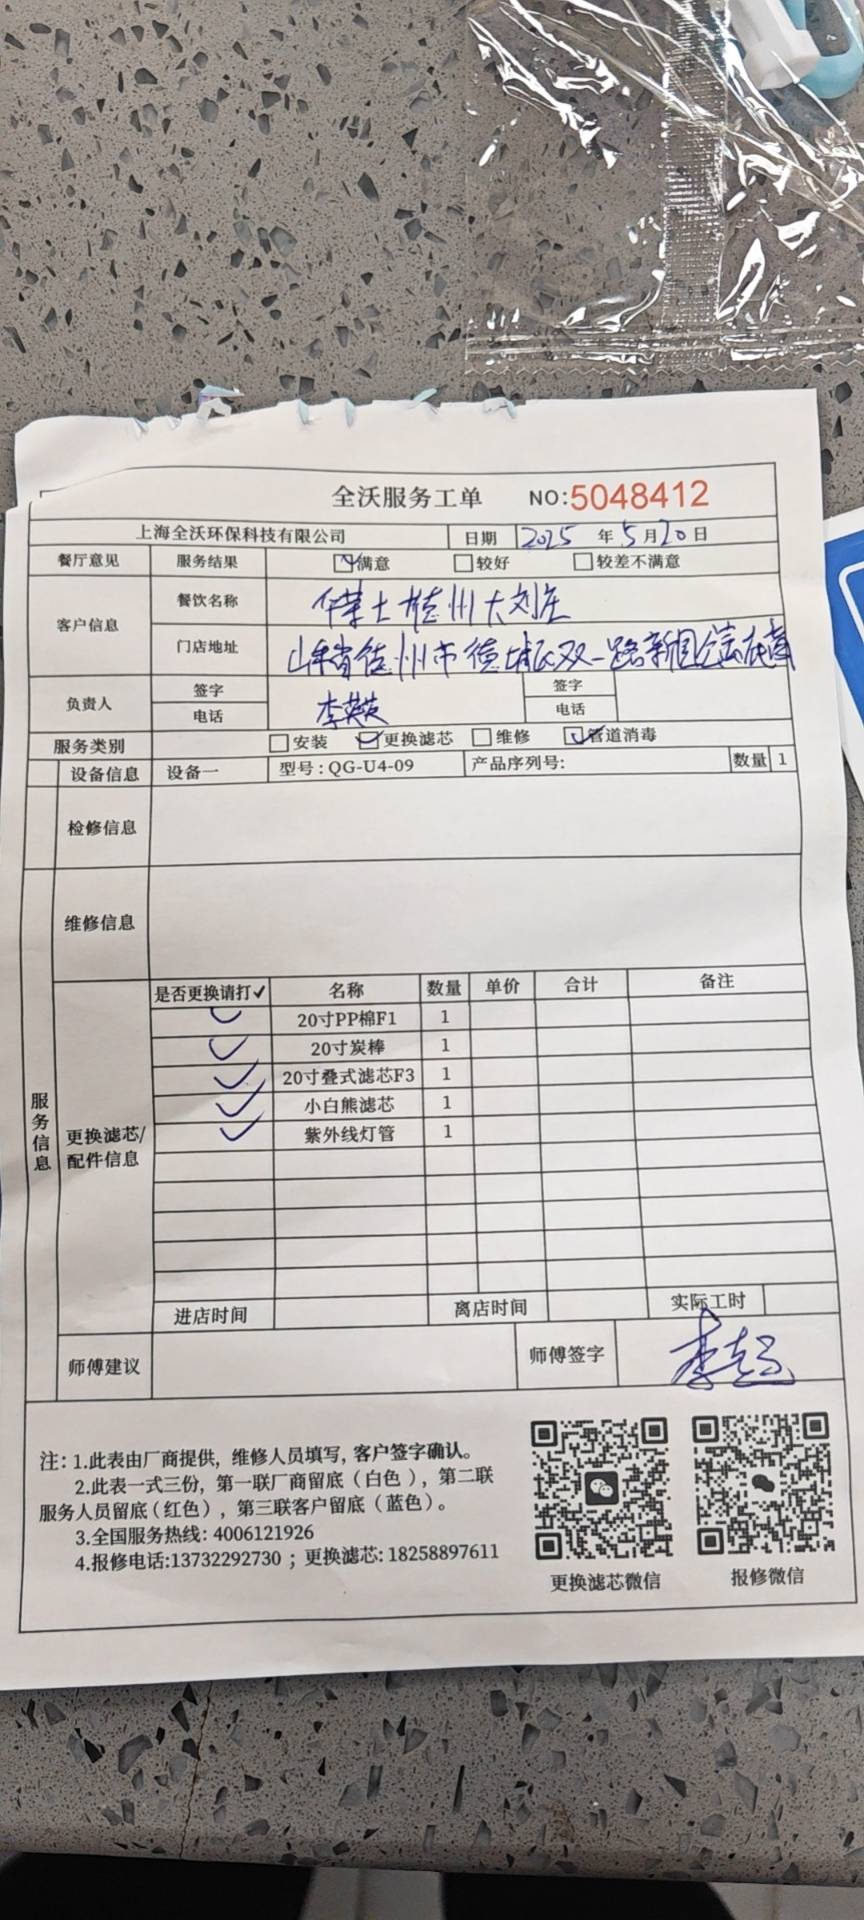 全沃服务工单 NO:5048412
上海全沃环保科技有限公司 日期 2025 年 5 月 20 日
餐厅意见 服务结果 ✓满意 较好 较差不满意
客户信息 餐饮名称 华莱士德州大刘庄
门店地址 山东省德州市德城区双一路新园
负责人 签字 李英英 签字
电话 电话
服务类别 安装 ✓更换滤芯 维修 ✓管道消毒
设备信息 设备一 型号:QG-U4-09 产品序列号: 数量 1
检修信息
维修信息
服务信息
更换滤芯/
配件信息
是否更换请打✓ 名称 数量 单价 合计 备注
✓ 20寸PP棉F1 1
✓ 20寸炭棒 1
✓ 20寸叠式滤芯F3 1
✓ 小白熊滤芯 1
✓ 紫外线灯管 1
进店时间 离店时间 实际工时
师傅建议 师傅签字
注: 1.此表由厂商提供, 维修人员填写, 客户签字确认。
2.此表一式三份, 第一联厂商留底(白色), 第二联
服务人员留底(红色), 第三联客户留底(蓝色)。
3.全国服务热线: 4006121926
4.报修电话:13732292730 ; 更换滤芯: 18258897611
更换滤芯微信 报修微信